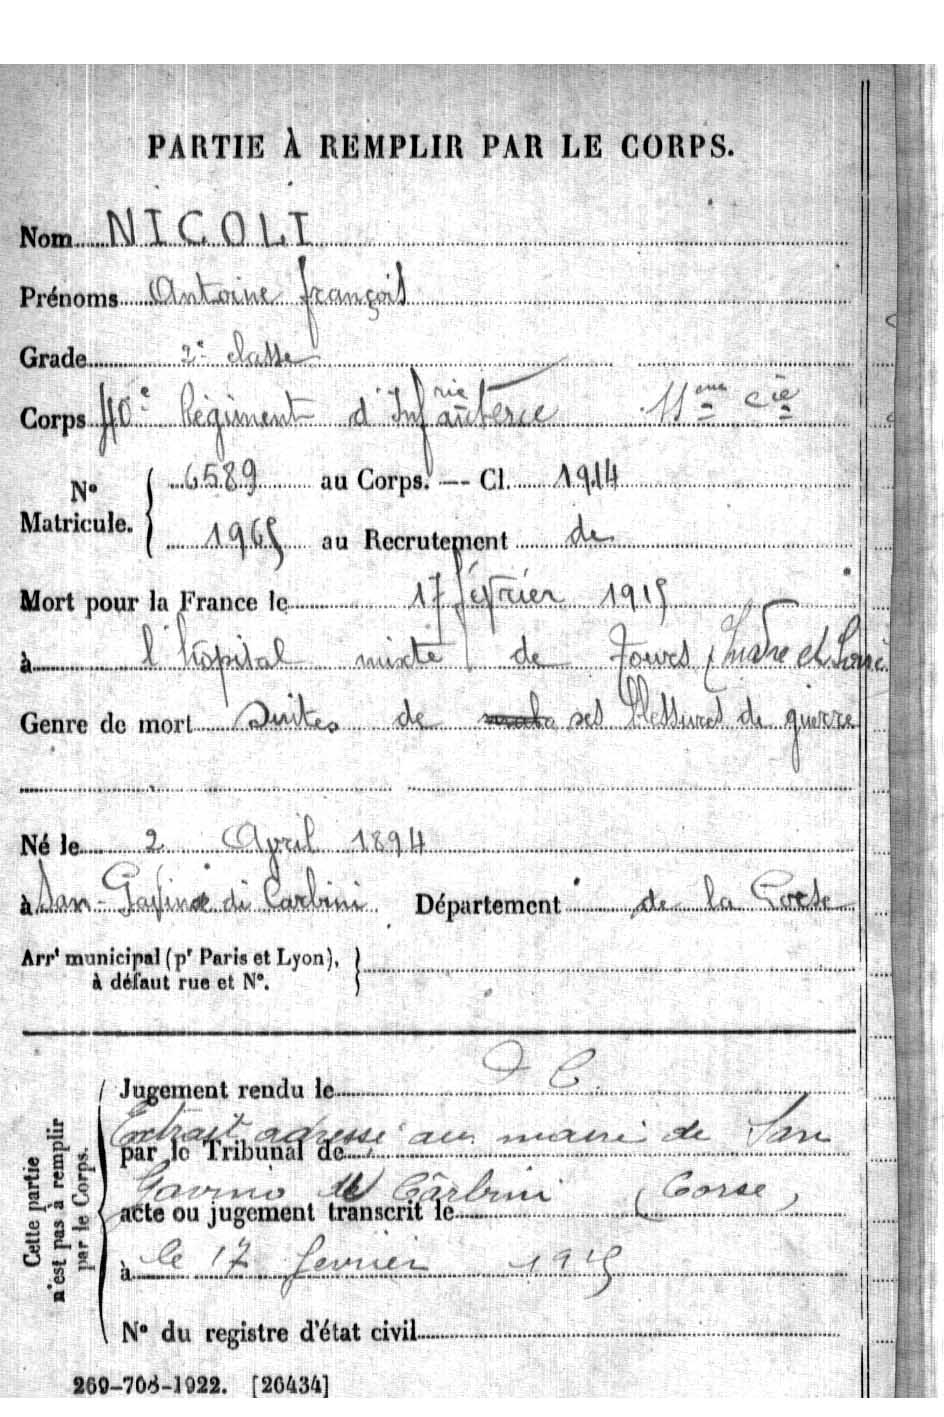 PARTIE À REMPLIR PAR LE CORPS.
Nom NICOLI
Prénoms Antoine françois
Grade 2e classe
Corps 40e Régiment d'Infanterie 11eme Cie
No Matricule. 6589 au Corps. — Cl. 1914
1965 au Recrutement de
Mort pour la France le 17 février 1915
à l'hôpital mixte de Tours (Indre et Loire
Genre de mort suites de ses blessures de guerre
Né le 2 Avril 1894
à San-Gavino di Carbini Département de la Corse
Arrt municipal (pr Paris et Lyon),
à défaut rue et No.
Cette partie
n'est pas à remplir
par le Corps.
Jugement rendu le
Extrait adressé au maire de San
par le Tribunal de
Gavino di Carbini (Corse)
acte ou jugement transcrit le
à le 17 fevrier 1915
No du registre d'état civil
269-708-1922. [26434]